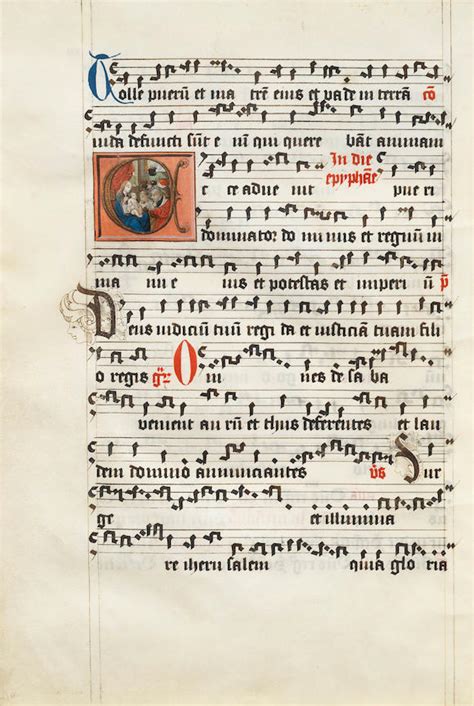 Tolle puerū et ma trē eius et vade in terrā cō
iuda defuncti sūt e nī qui quere bāt animam
In die
epyphāe
E c ce adue nit
dominator do mi nus et regnū in
ma nu e ius et potestas et imperi ū p̄
Deus iudiciū tuū regi da et iusticiā tuam fili
o regis gr̄ Om nes de sa ba
venient au rū et thus deferentes et lau
dem domino annunciantes v̄s Sur
ge et illumina
re iheru salem quia glo ria